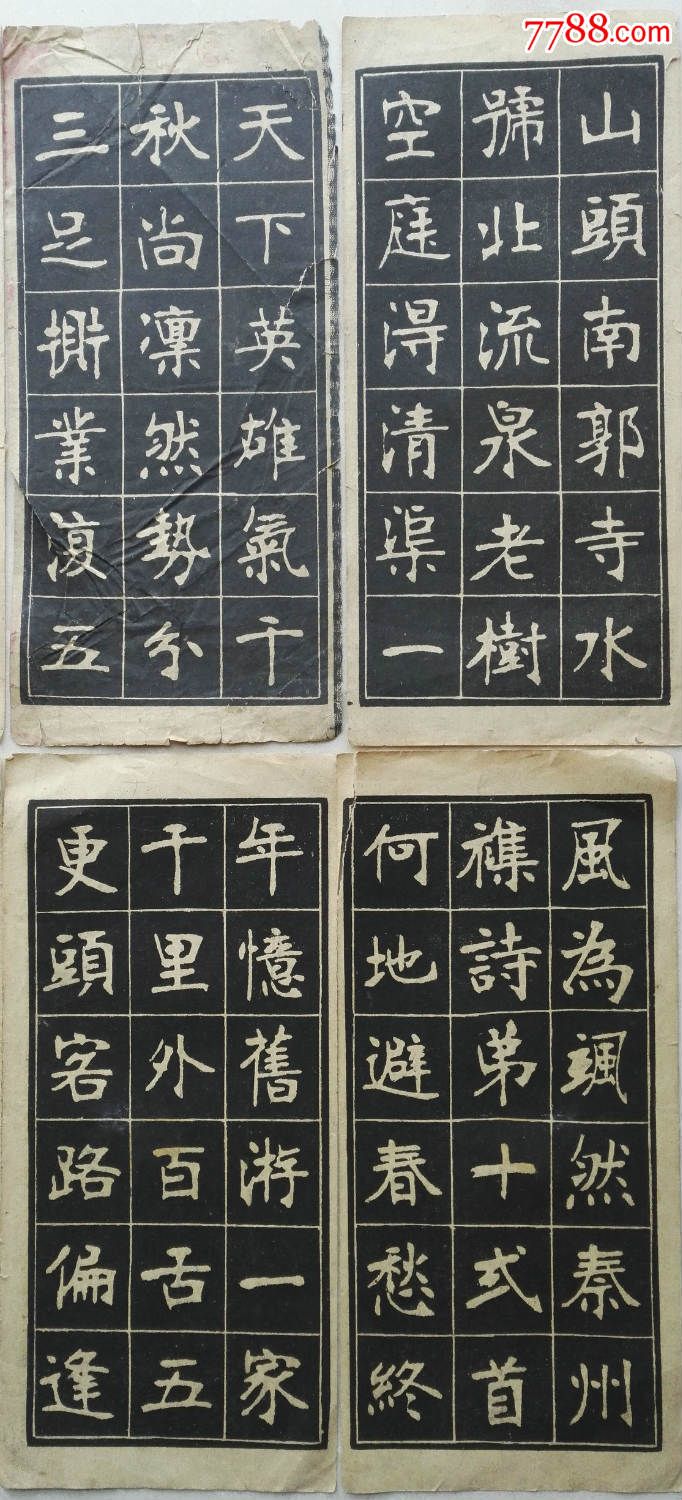 7788.com
山頭南郭寺水
號北流泉老樹
空庭得清渠一
天下英雄氣千
秋尚凜然勢分
三足鼎業復五
風為颯然秦州
襍詩弟十弍首
何地避春愁終
年憶舊游一家
千里外百舌五
更頭客路偏逢